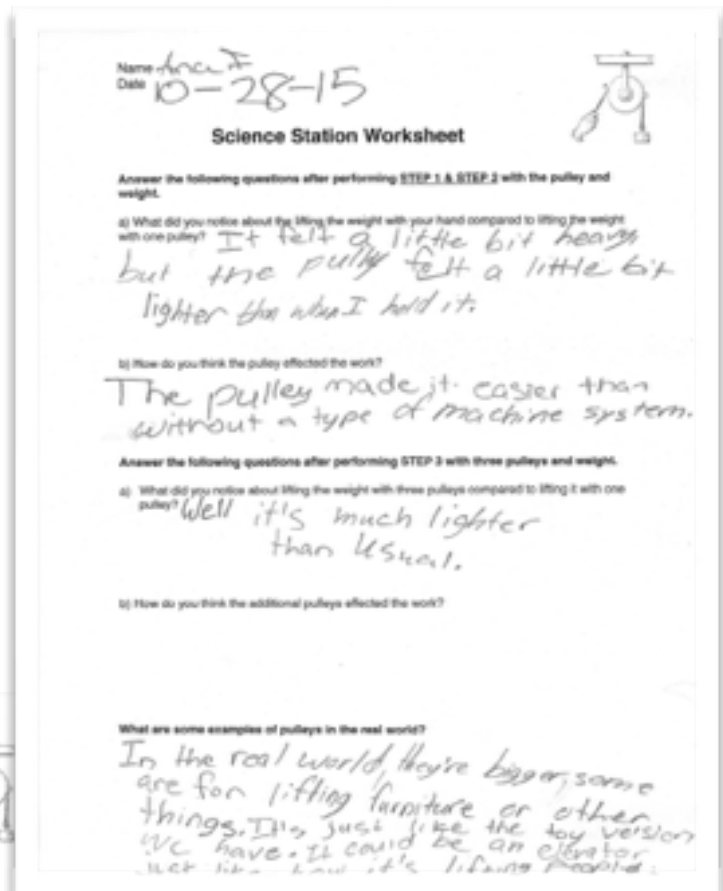 Name
Date 10-28-15
Science Station Worksheet
Answer the following questions after performing STEP 1 & STEP 2 with the pulley and
weight.
a) What did you notice about the lifting the weight with your hand compared to lifting the weight
with one pulley? It felt a little bit heavy
but the pully felt a little bit
lighter than when I held it.
b) How do you think the pulley effected the work?
The pulley made it easier than
without a type of machine system.
Answer the following questions after performing STEP 3 with three pulleys and weight.
a) What did you notice about lifting the weight with three pulleys compared to lifting it with one
pulley? Well it's much lighter
than usual.
b) How do you think the additional pulleys effected the work?
What are some examples of pulleys in the real world?
In the real world, they're bigger, some
are for lifting furniture or other
things. It's just like the toy version
we have. It could be an elevator
just like how it's lifting people.